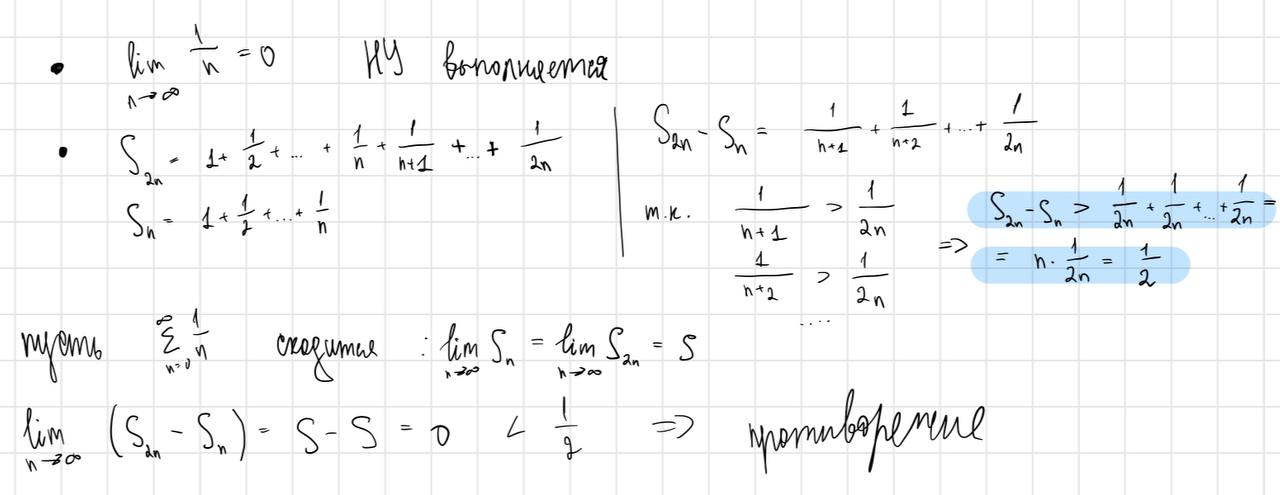 • lim_{n→∞} 1/n = 0 НУ выполняется
• S_{2n} = 1 + 1/2 + ... + 1/n + 1/(n+1) + ... + 1/(2n)
S_n = 1 + 1/2 + ... + 1/n
S_{2n} - S_n = 1/(n+1) + 1/(n+2) + ... + 1/(2n)
т.к. 1/(n+1) > 1/(2n)
1/(n+2) > 1/(2n)
....
=> S_{2n} - S_n > 1/(2n) + 1/(2n) + ... + 1/(2n) =
= n · 1/(2n) = 1/2
пусть ∑_{n=0}^{∞} 1/n сходится : lim_{n→∞} S_n = lim_{n→∞} S_{2n} = S
lim_{n→∞} (S_{2n} - S_n) = S - S = 0 < 1/2 => противоречие